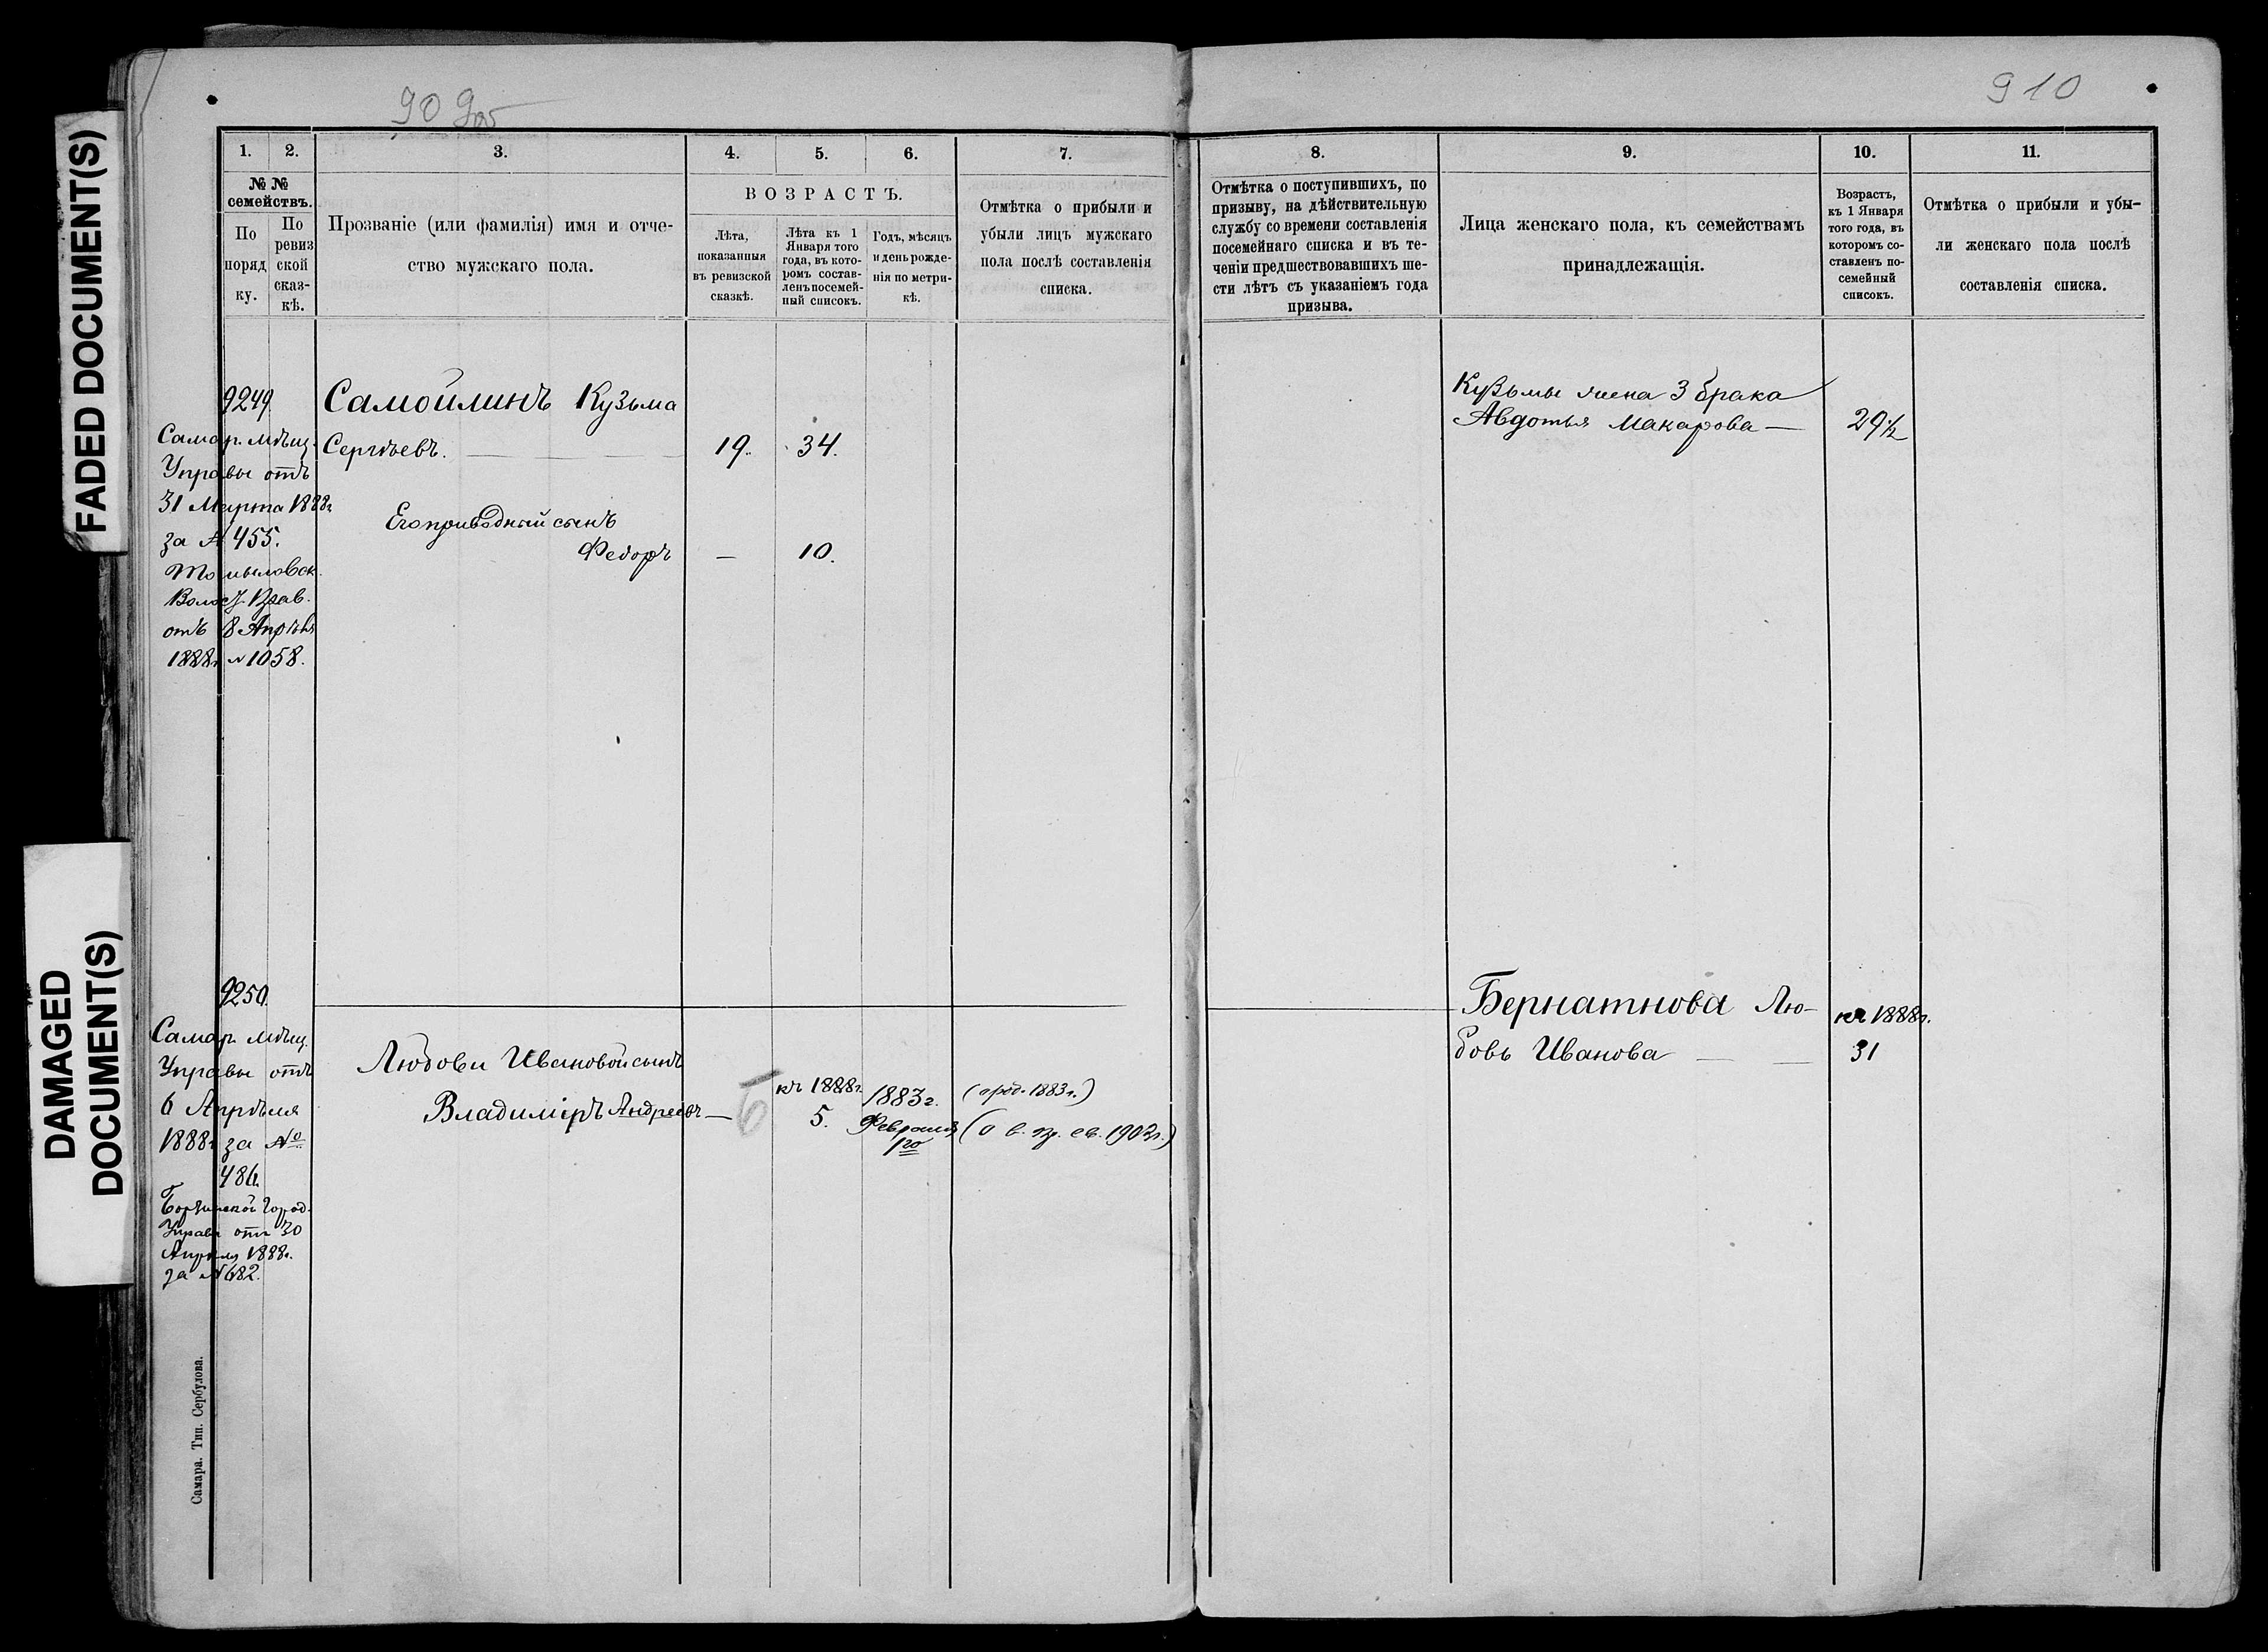 FADED DOCUMENT(S)
DAMAGED
DOCUMENT(S)
910
1. 2. 3. 4. 5. 6. 7.
№ №
семействъ.
По
поряд
ку.
По
ревиз
ской
сказ-
кѣ.
Прозваніе (или фамилія) имя и отче-
ство мужскаго пола.
ВОЗРАСТЪ.
Лѣта,
показанныя
въ ревизской
сказкѣ.
Лѣта къ 1
Января того
года, въ кото-
ромъ состав-
ленъ посемей-
ный списокъ.
Годъ, мѣсяцъ
и день рожде-
нія по метри-
кѣ.
Отмѣтка о прибыли и
убыли лицъ мужскаго
пола послѣ составленія
списка.
8. 9. 10. 11.
Отмѣтка о поступившихъ, по
призыву, на дѣйствительную
службу со времени составленія
посемейнаго списка и въ те-
ченіи предшествовавшихъ ше-
сти лѣтъ съ указаніемъ года
призыва.
Лица женскаго пола, къ семействамъ
принадлежащія.
Возрастъ,
къ 1 Января
того года, въ
которомъ со-
ставленъ по-
семейный
списокъ.
Отмѣтка о прибыли и убы-
ли женскаго пола послѣ
составленія списка.
9249
Самар. Мѣщ.
Управы отъ
31 Марта 1888г.
за № 455.
Томыловск.
Волост. Прав.
отъ 8 Апрѣля
1888г. № 1058.
Самойлинъ Кузьма
Сергѣевъ. — 19. 34.
Его приводный сынъ
Федоръ — 10.
Кузьмы жена 3 брака
Авдотья Макарова — 29½
9250.
Самар. Мѣщ.
Управы отъ
6 Апрѣля
1888г. за №
486.
Город.
Управы отъ 30
Апрѣля 1888г.
за № 682.
Любови Ивановой сынъ
Владиміръ Андреевъ —
къ 1888г.
5.
1883г.
Февраля
1го
(о род. 1883г.)
(о в. пр. св. 1903г.)
Бернатнова Лю-
бовь Иванова —
къ 1888г.
31
Самара. Тип. Сербулова.